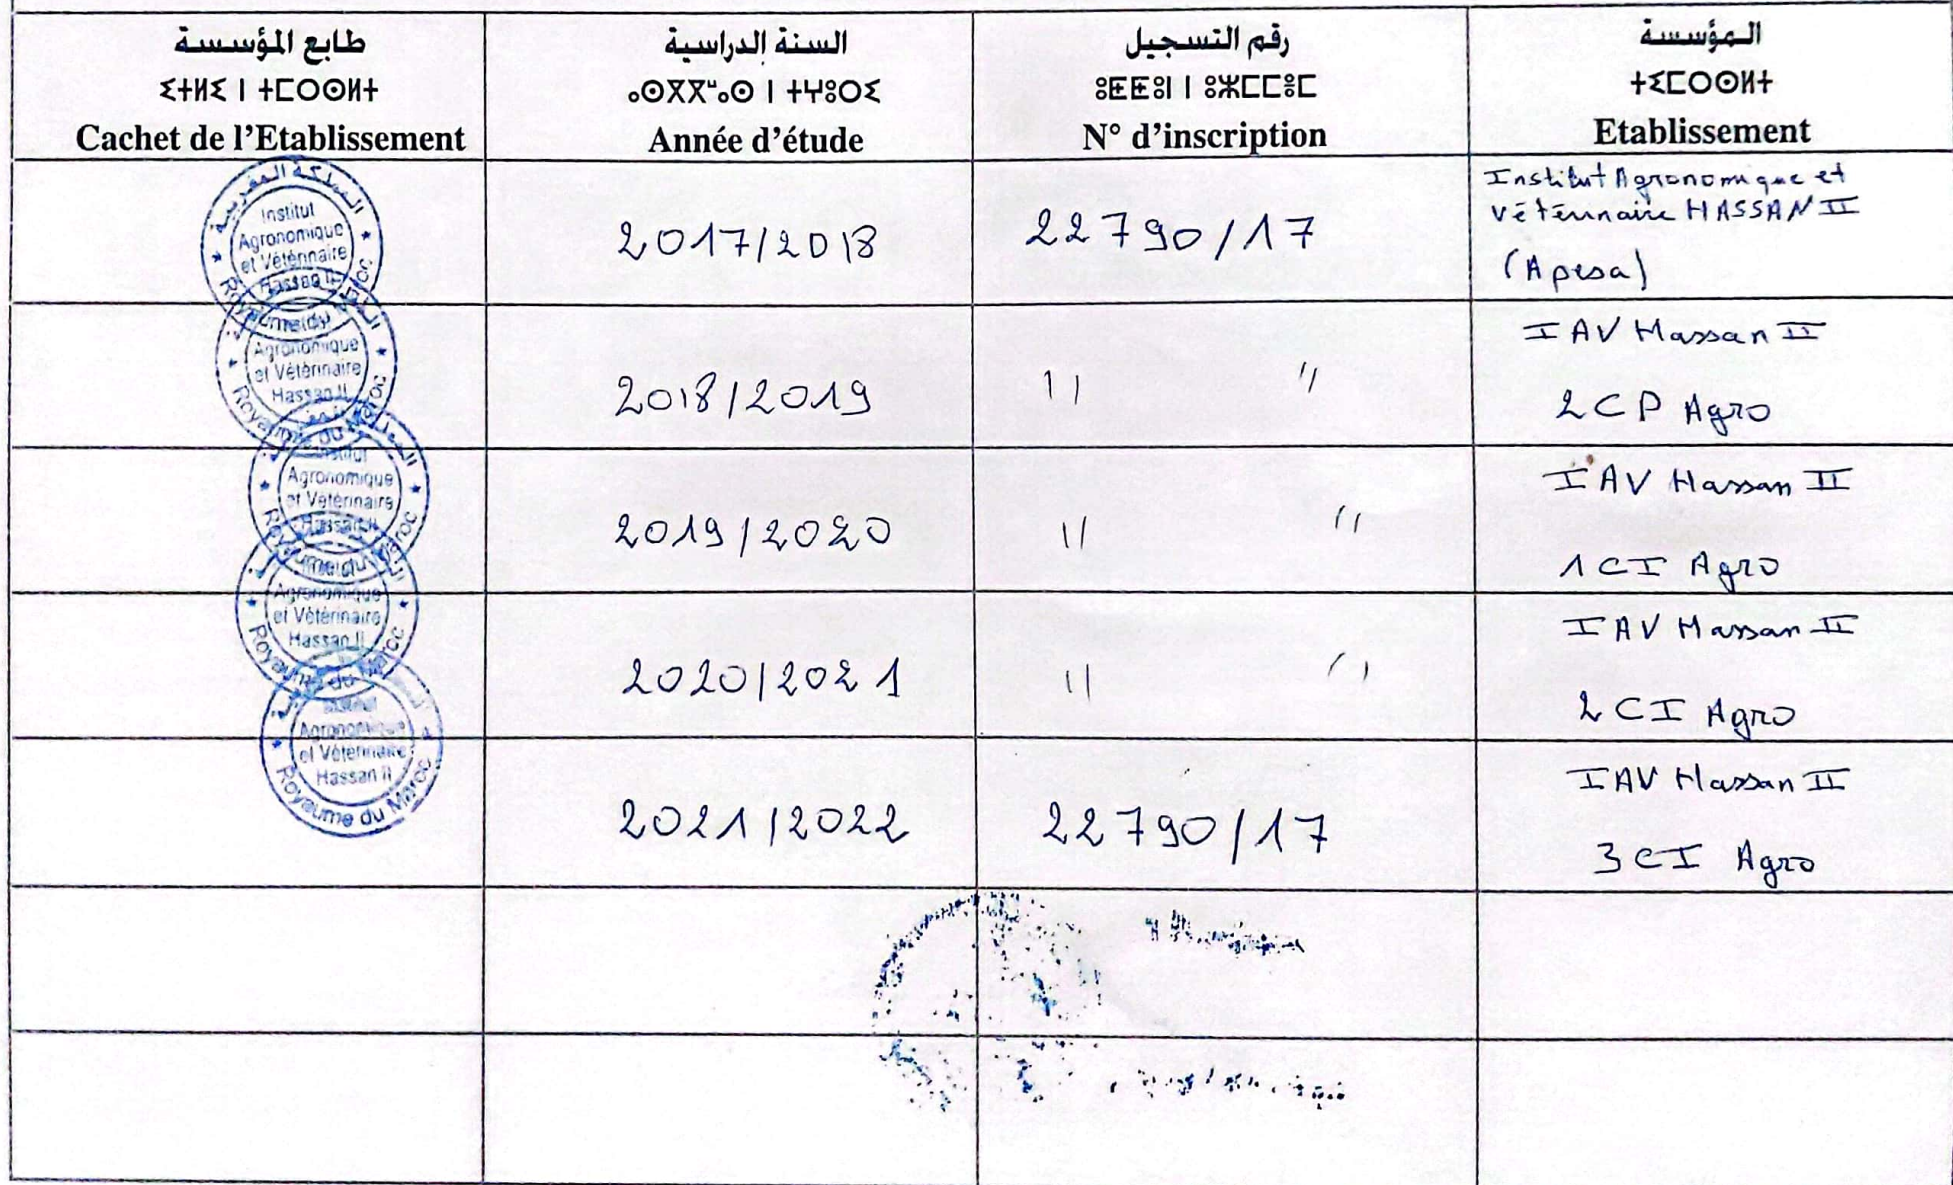 طابع المؤسسة
ⵉⵜⵍⵉ ⵏ ⵜⵎⵔⵙⵍⵜ
Cachet de l'Etablissement
السنة الدراسية
ⴰⵙⴳⴳⵯⴰⵙ ⵏ ⵜⵖⵓⵔⵉ
Année d'étude
رقم التسجيل
ⵓⵟⵟⵓⵏ ⵏ ⵓⵣⵎⵎⵓⵎ
N° d'inscription
المؤسسة
ⵜⵉⵎⵔⵙⵍⵜ
Etablissement
المملكة المغربية
Institut
Agronomique
et Vétérinaire
Hassan II
Royaume du Maroc
2017/2018
22790/17
Institut Agronomique et
Vétérinaire HASSAN II
(Apesa)
Agronomique
et Vétérinaire
Hassan II
Royaume du Maroc
2018/2019
" "
IAV Hassan II
2 CP Agro
Institut
Agronomique
et Vétérinaire
Hassan II
Royaume du Maroc
2019/2020
" "
IAV Hassan II
1 CI Agro
Agronomique
et Vétérinaire
Hassan II
Royaume du Maroc
2020/2021
" "
IAV Hassan II
2 CI Agro
Agronomique
et Vétérinaire
Hassan II
Royaume du Maroc
2021/2022
22790/17
IAV Hassan II
3 CI Agro